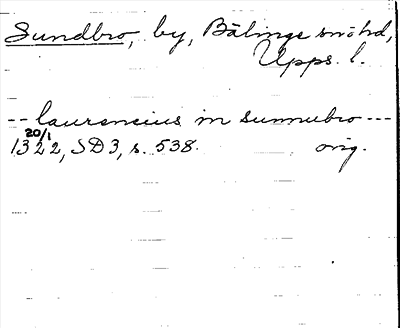 Sundbro, by, Bälinge snöhd,
Upps. l.
-- laurencius in sunnubro ---
20/1
1322, SD3, s. 538. orig.